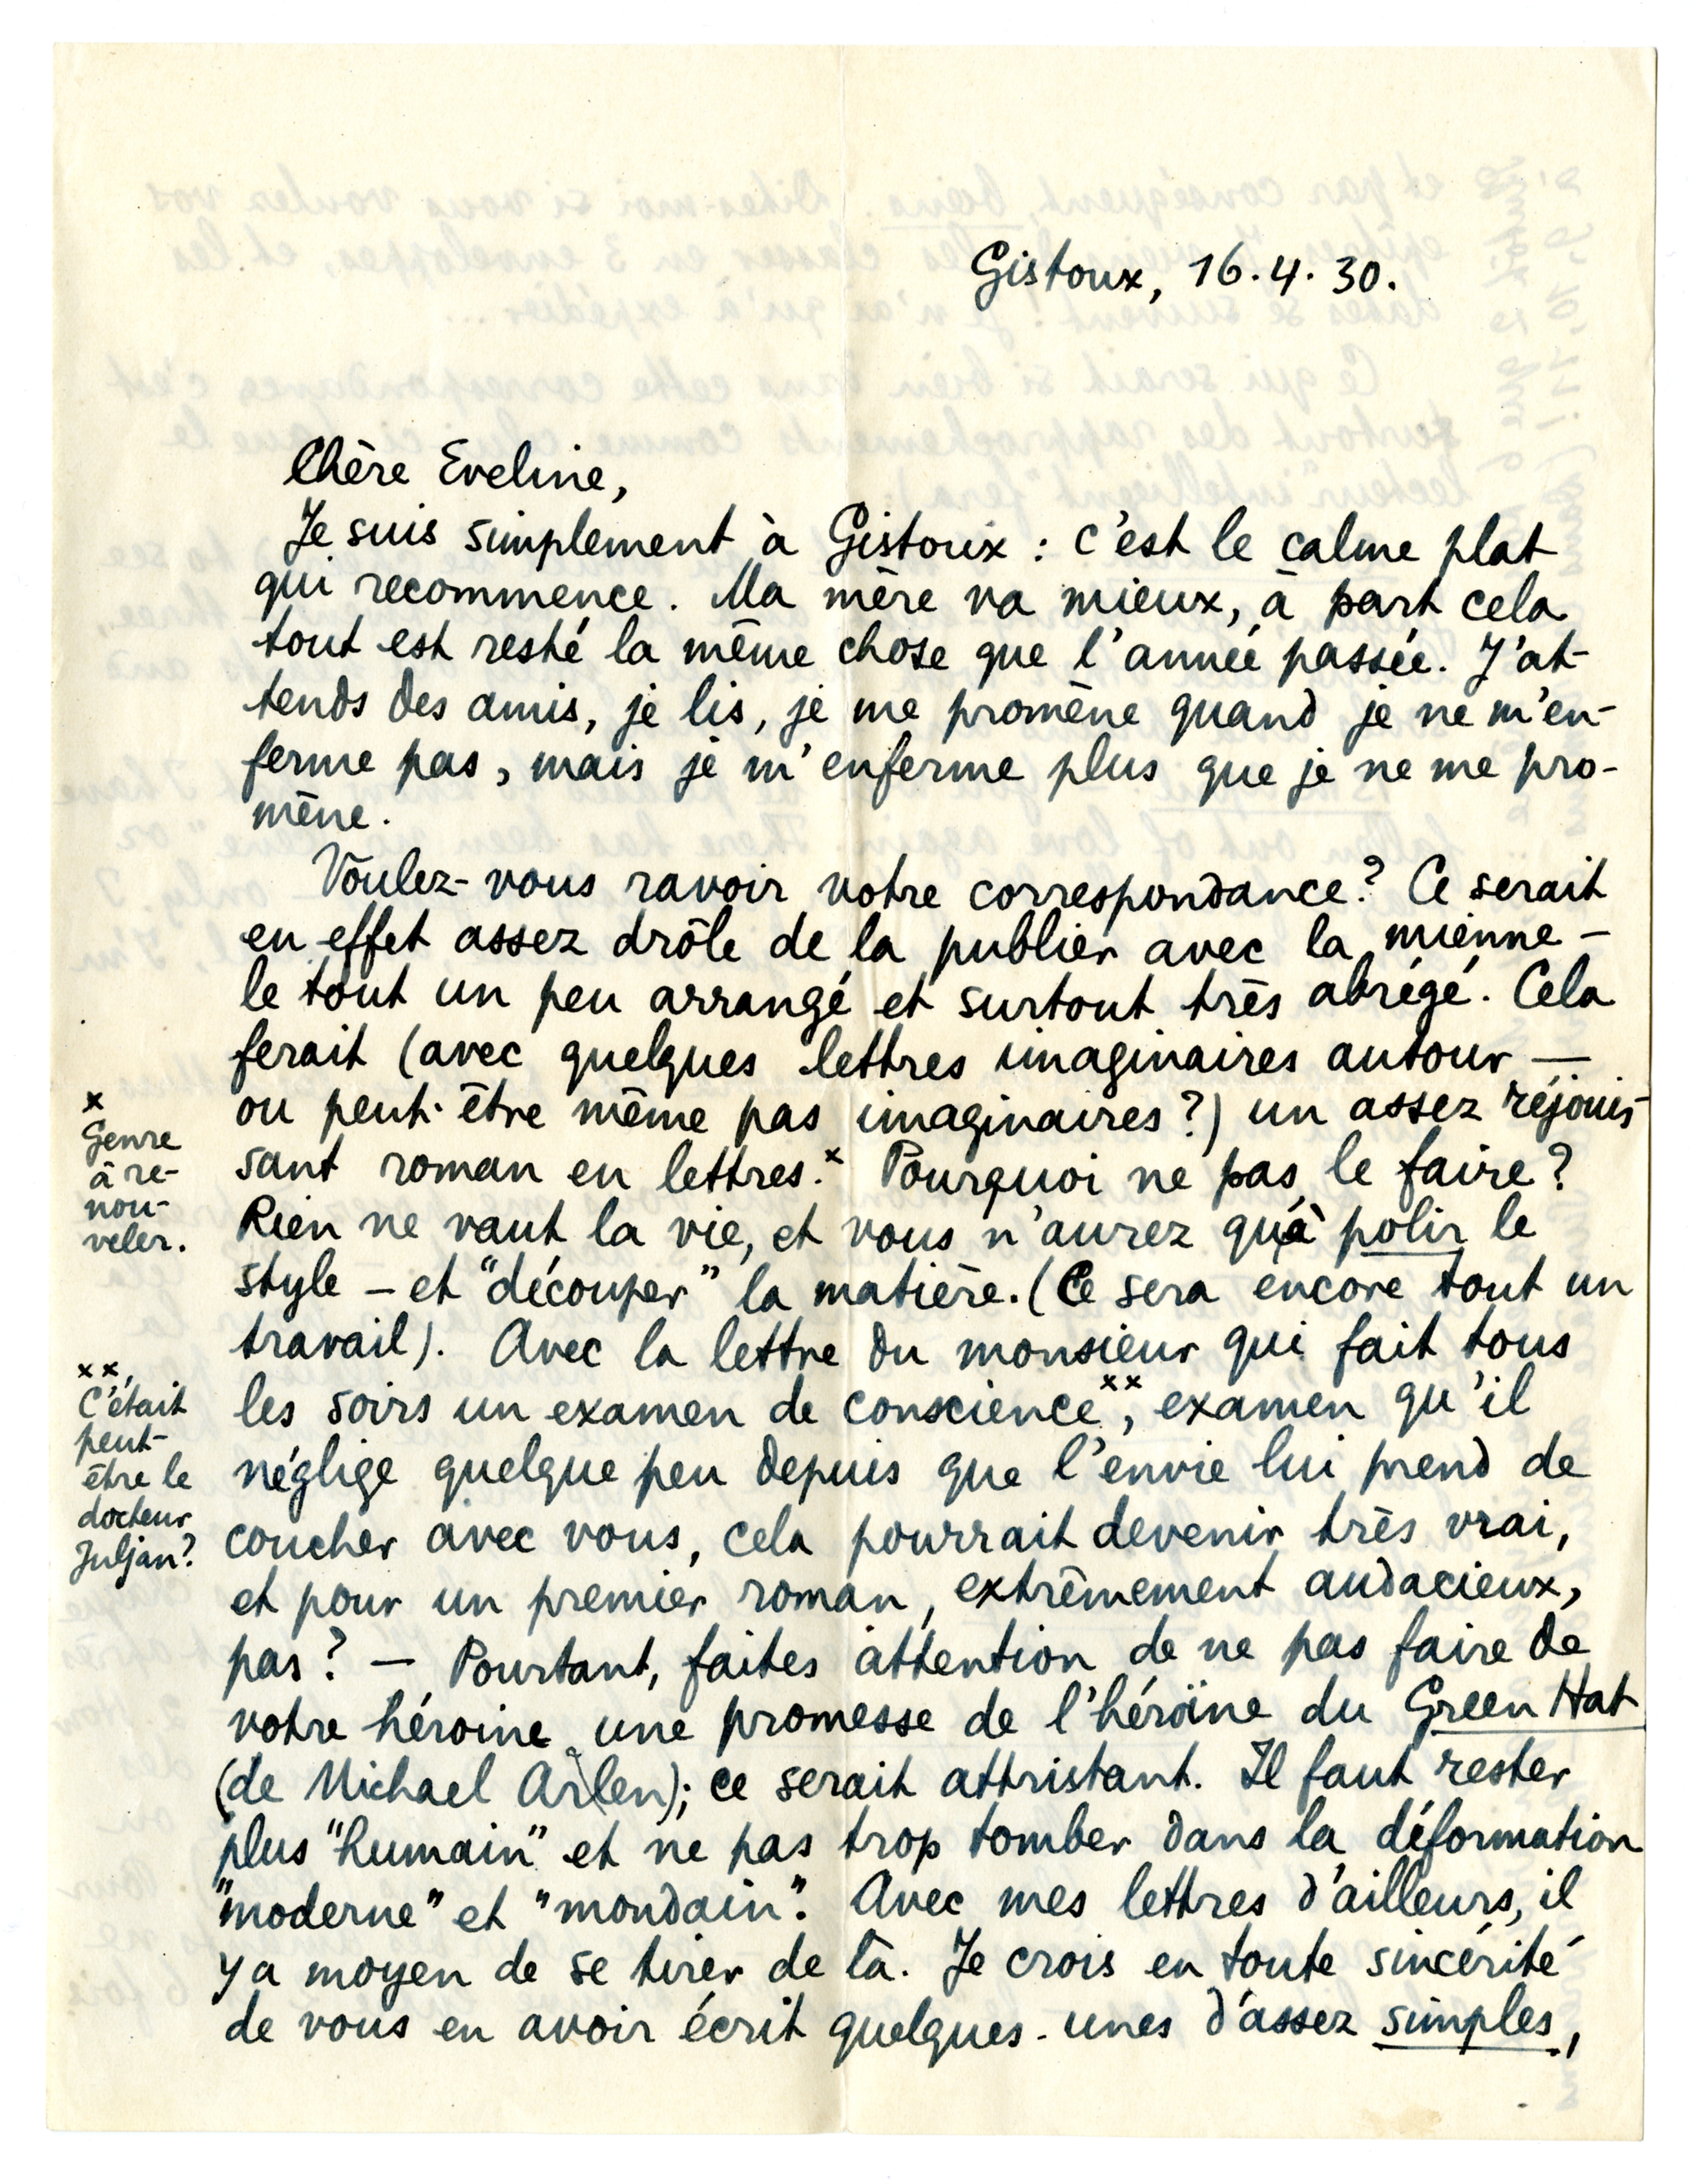 Gistoux, 16.4.30.
Chère Eveline,
Je suis simplement à Gistoux : c'est le calme plat
qui recommence. Ma mère va mieux, à part cela
tout est resté la même chose que l'année passée. J'at-
tends des amis, je lis, je me promène quand je ne m'en-
ferme pas, mais je m'enferme plus que je ne me pro-
mène.
Voulez-vous ravoir votre correspondance? Ce serait
en effet assez drôle de la publier avec la mienne —
le tout un peu arrangé et surtout très abrégé. Cela
ferait (avec quelques lettres imaginaires autour —
ou peut-être même pas imaginaires?) un assez réjouis-
sant roman en lettres.x Pourquoi ne pas le faire?
Rien ne vaut la vie, et vous n'aurez qu'à polir le
style — et "découper" la matière. (Ce sera encore tout un
travail). Avec la lettre du monsieur qui fait tous
les soirs un examen de conscience xx, examen qu'il
néglige quelque peu depuis que l'envie lui prend de
coucher avec vous, cela pourrait devenir très vrai,
et pour un premier roman, extrêmement audacieux,
pas? — Pourtant, faites attention de ne pas faire de
votre héroine une promesse de l'héroïne du Green Hat
(de Michael Arlen); ce serait attristant. Il faut rester
plus "humain" et ne pas trop tomber dans la déformation
"moderne" et "mondain". Avec mes lettres d'ailleurs, il
y a moyen de se tirer de là. Je crois en toute sincérité
de vous en avoir écrit quelques-unes d'assez simples,
x
Genre
à re-
nou-
veler.
xx
C'était
peut-
être le
docteur
Juljan?